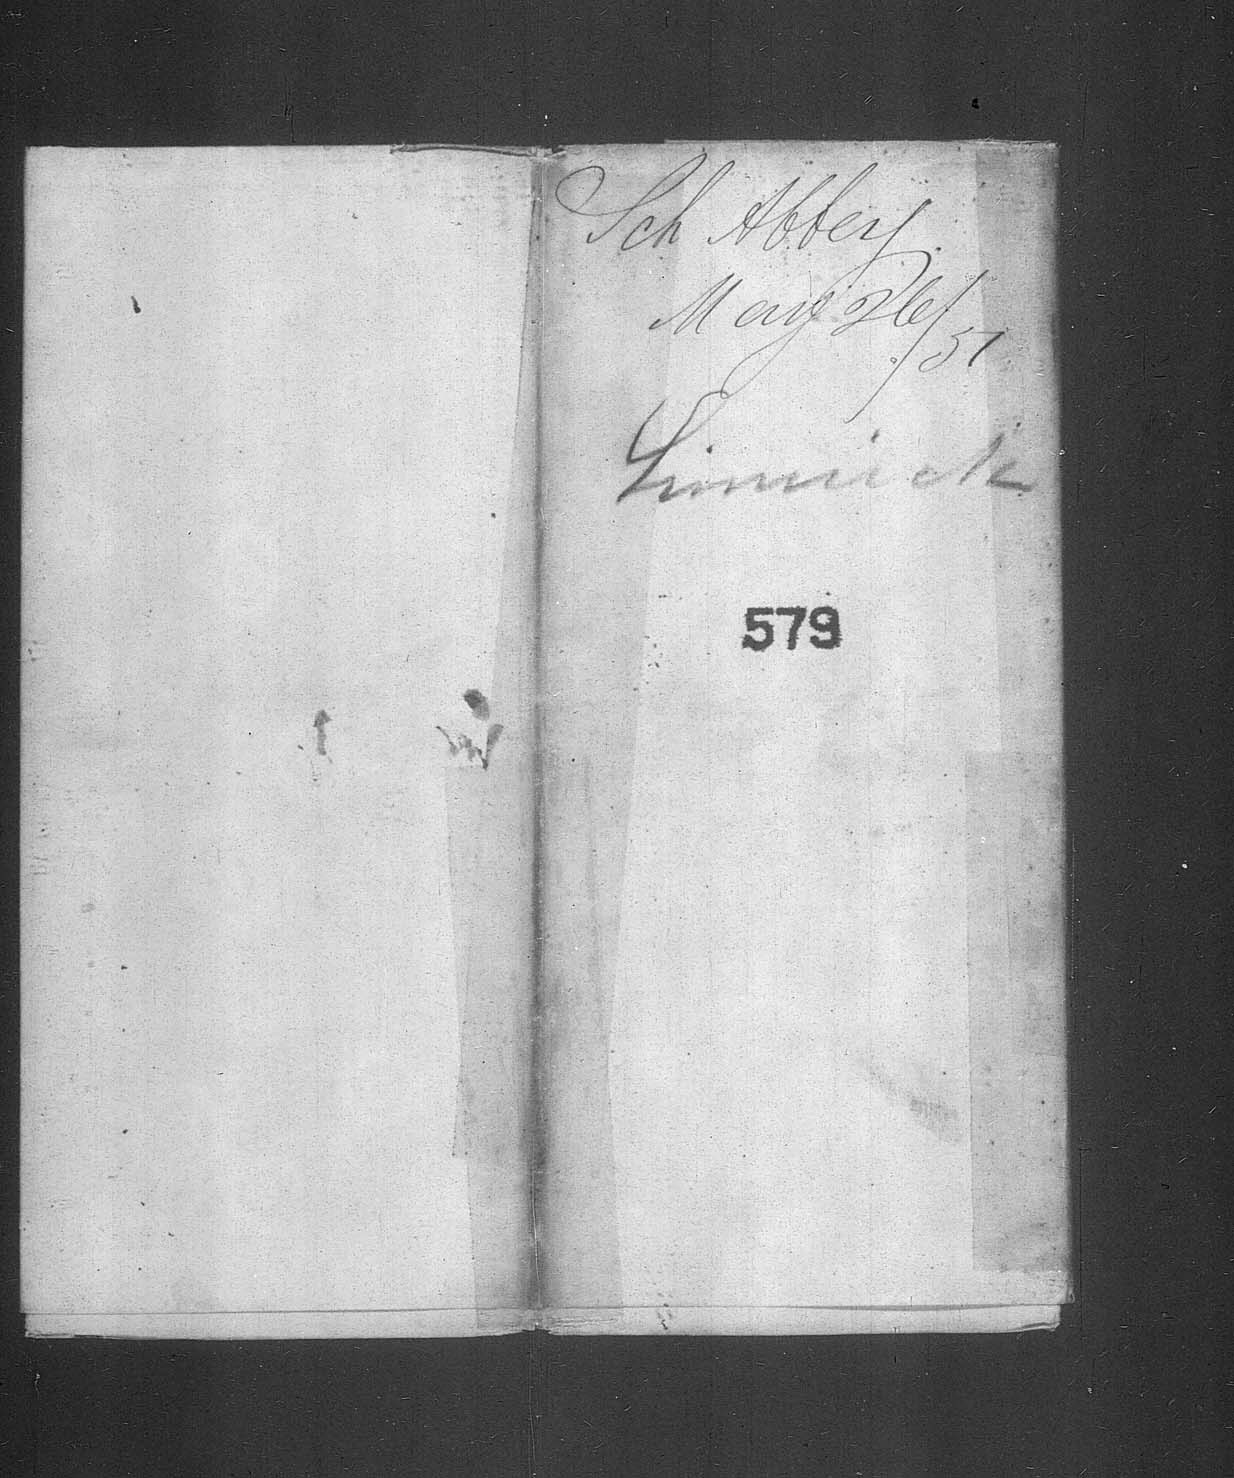 Sch Abbey
May 26/51
Limrick
579